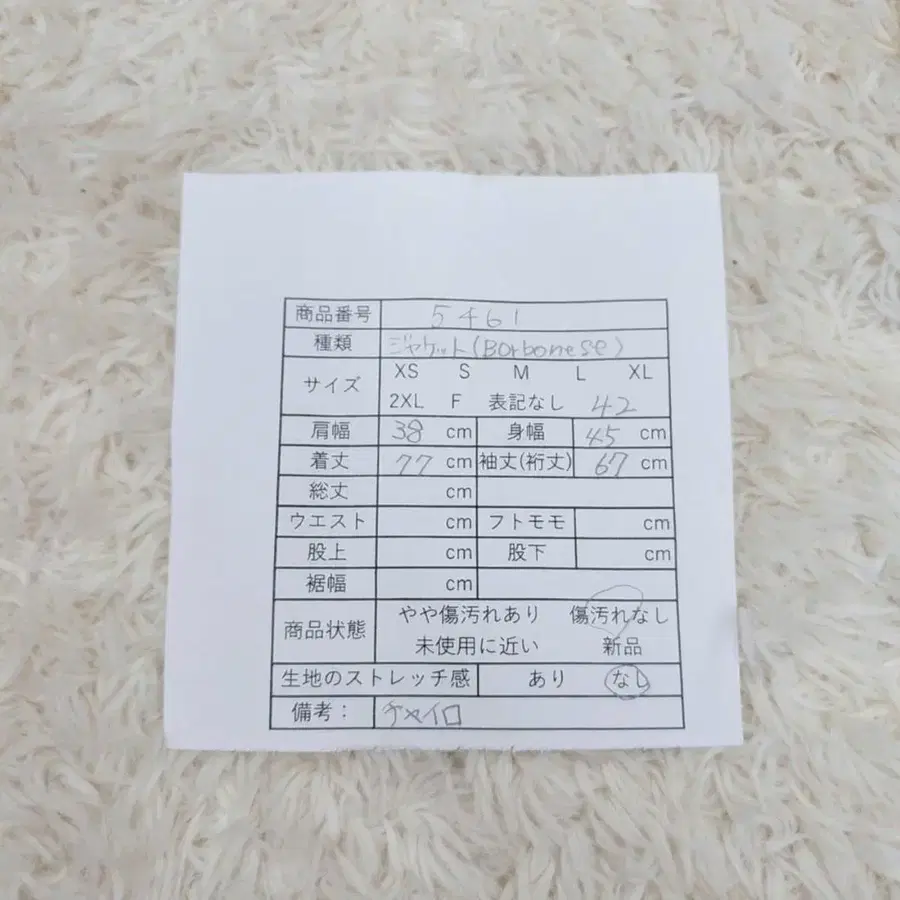 商品番号 5461
種類 ジャケット(Borbonese)
サイズ XS S M L XL
2XL F 表記なし 42
肩幅 38 cm 身幅 45 cm
着丈 77 cm 袖丈(裄丈) 67 cm
総丈 cm
ウエスト cm フトモモ cm
股上 cm 股下 cm
裾幅 cm
商品状態 やや傷汚れあり 傷汚れなし
未使用に近い 新品
生地のストレッチ感 あり なし
備考： チャイロ